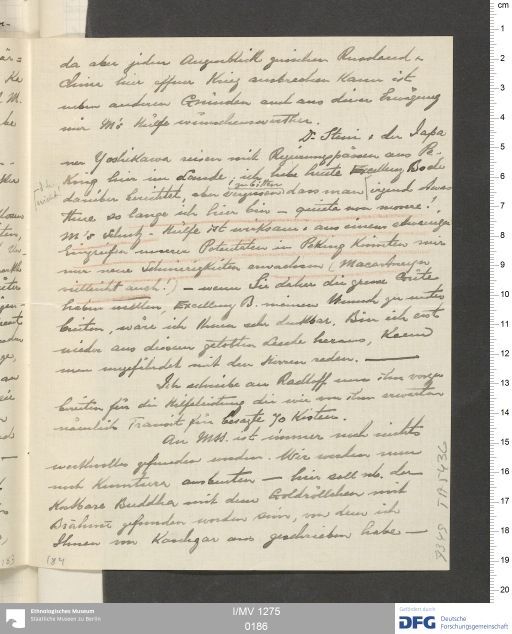 da aber jeden Augenblick zwischen Russland u
China hier offner Krieg ausbrechen kann ist
neben anderen Gründen auch aus dieser Erwägung
mir M's Hülfe wünschenswerther.
Dr Stein u der Japa
ner Yoshikawa reisen mit Regierungspässen aus Pe-
king hier im Lande; ich habe heute Excellenz Bode
zu bitten
darüber berichtet, aber vergessen dass man irgend etwas
thue so lange ich hier bin – quieta non movere!,
M's Schutz u Hülfe ist wirksam u aus einem
Eingreifen unserer Potentaten in Peking könnten mir
nur neue Schwierigkeiten erwachsen (Macartneyer
vielleicht auch!) – wenn Sie daher die grosse Güte
haben wollten, Excellenz B. meinen Wunsch zu unter
breiten, wäre ich Ihnen sehr dankbar. Bin ich erst
wieder aus diesem gelobten Lande heraus, kann
man ungefährdet mit den Herren reden. —
Ich schreibe an Radloff um ihn vorzu
bereiten für die Hilfeleistung die wir von ihm erwarten
nämlich Transit für besagte 70 Kisten.
An MSS. ist immer noch nichts
werthvolles gefunden worden. Wir werden nun
noch Kumtura ausbeuten – hier soll nb. der
kostbare Buddha mit dem Goldröllchen mit
Brāhmī gefunden worden sein, von dem ich
Ihnen von Kashgar aus geschrieben habe –
184
183
TA 5436
cm
1
2
3
4
5
6
7
8
9
10
11
12
13
14
15
16
17
18
19
20
Ethnologisches Museum
Staatliche Museen zu Berlin
I/MV 1275
0186
Gefördert durch
DFG Deutsche
Forschungsgemeinschaft